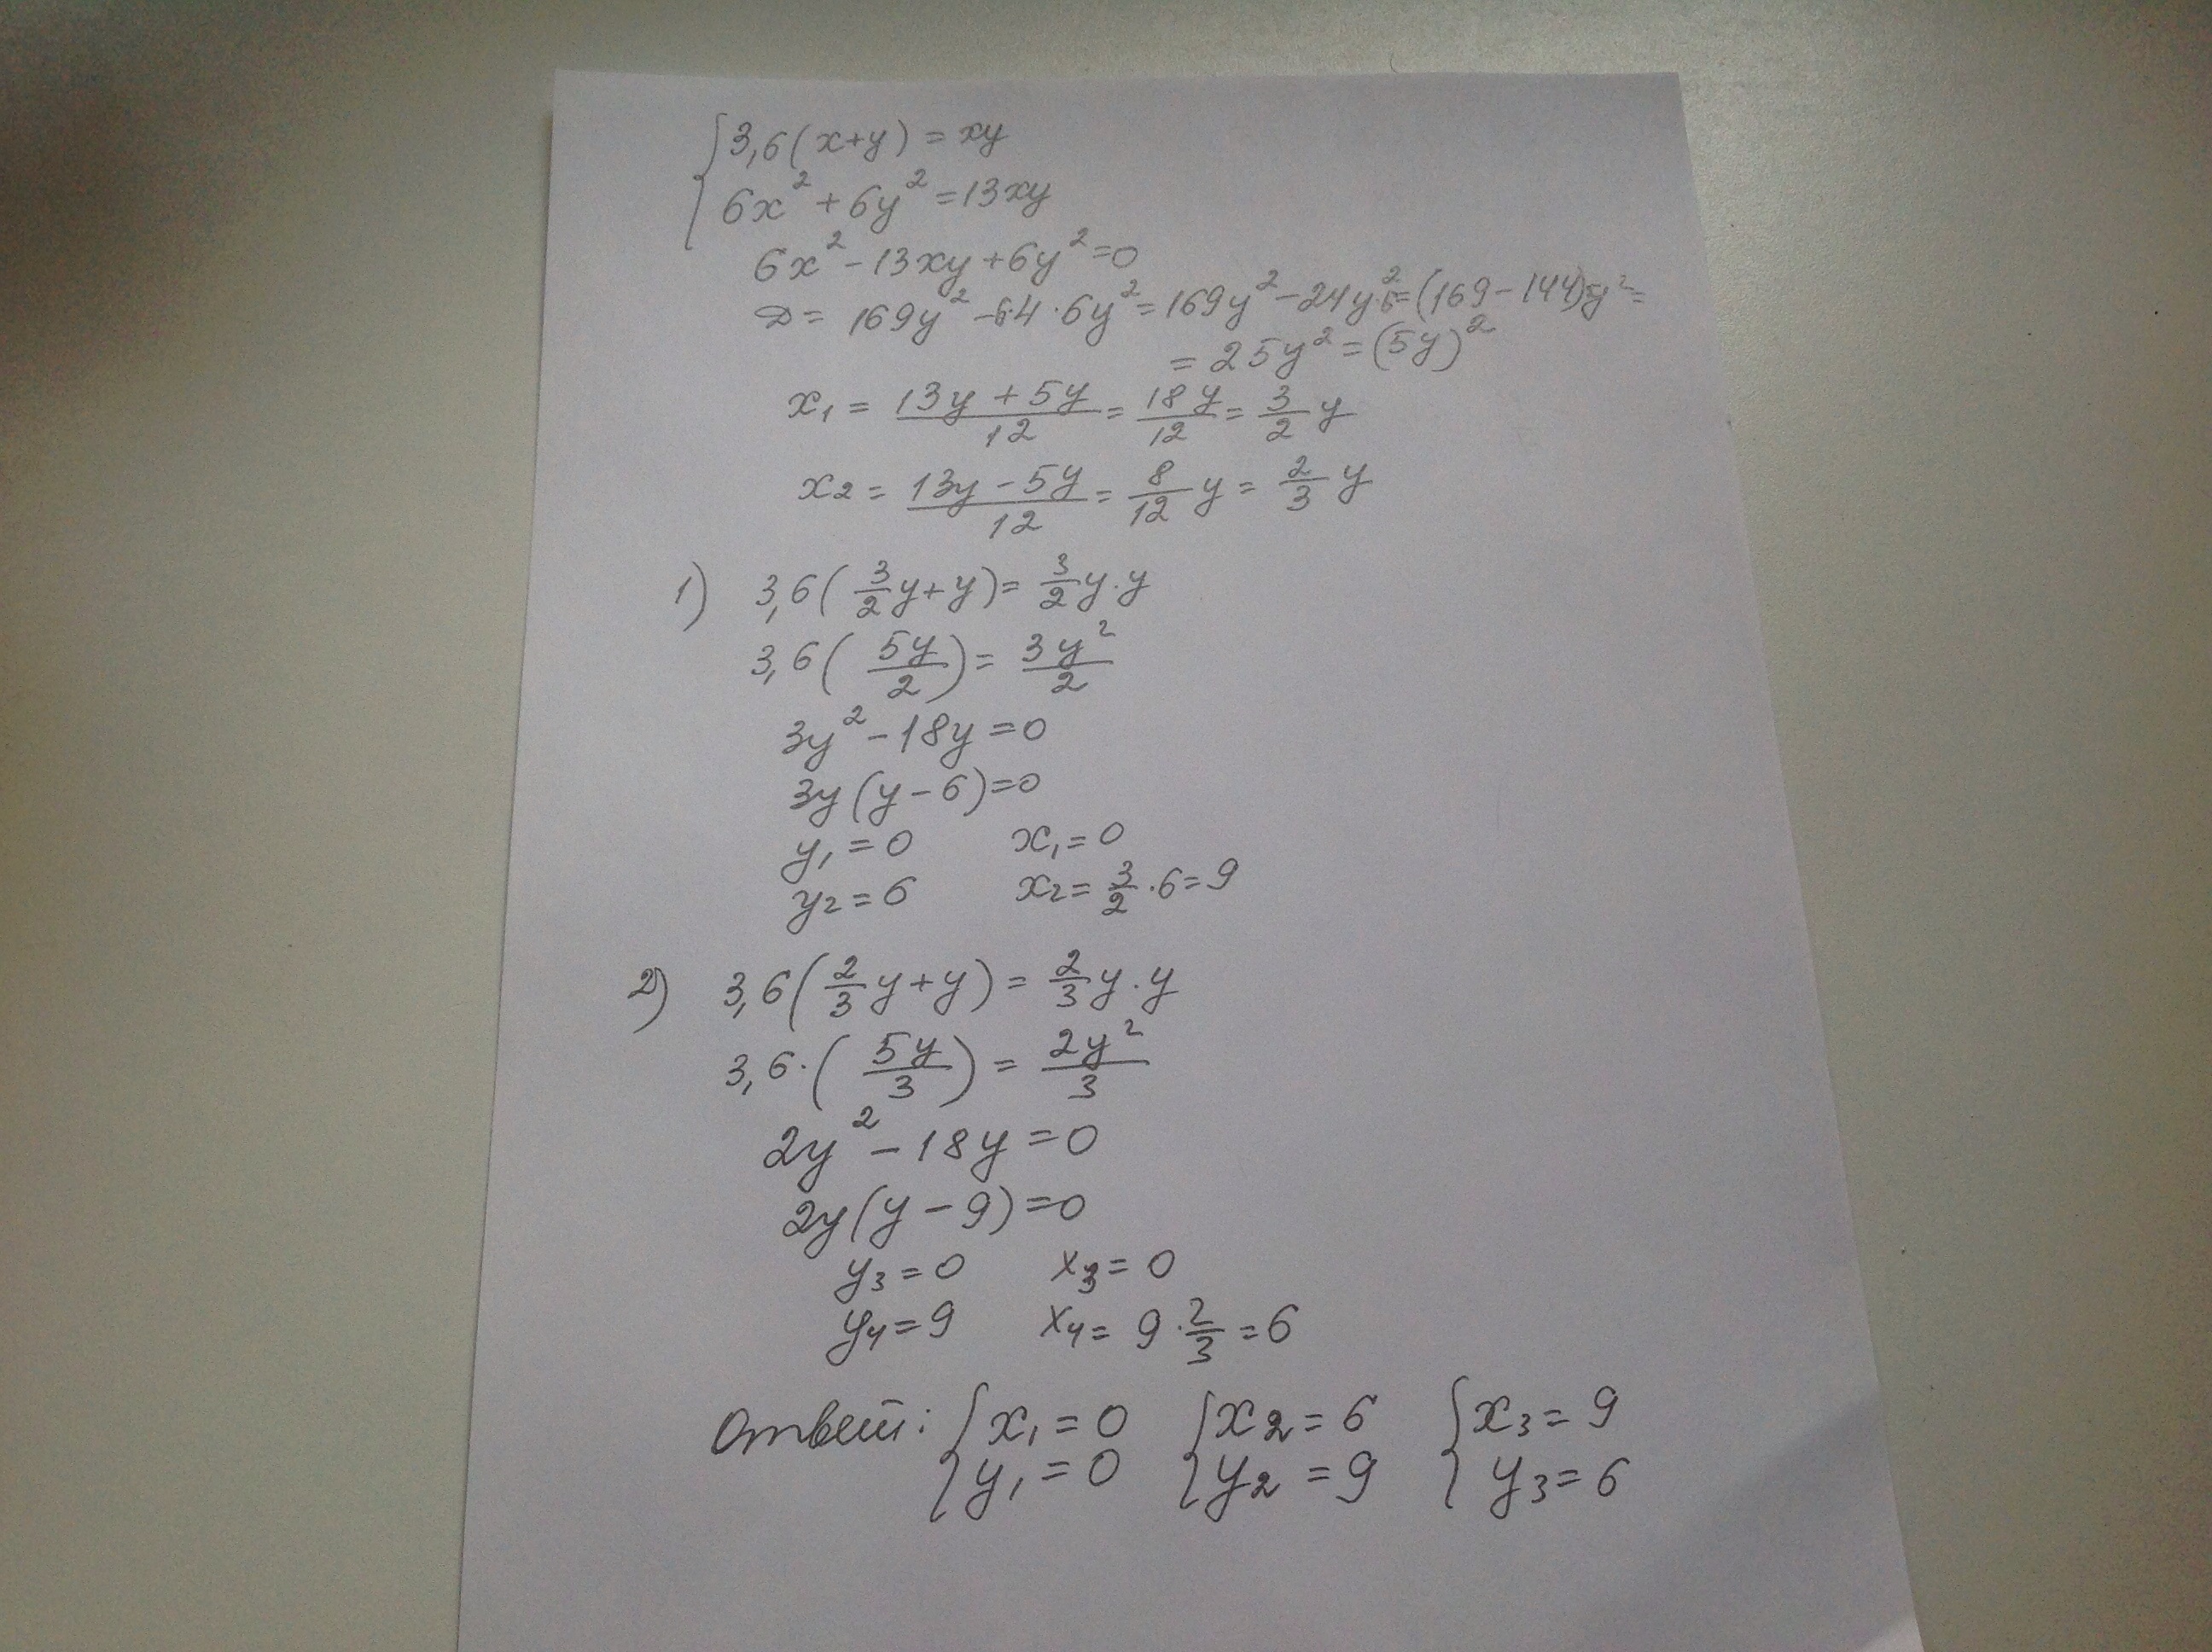 { 3,6(x+y) = xy
6x² + 6y² = 13xy
6x² - 13xy + 6y² = 0
D = 169y² - 6·4·6y² = 169y² - 24y²·6 = (169 - 144)y² =
= 25y² = (5y)²
x₁ = (13y + 5y)/12 = 18y/12 = 3/2 y
x₂ = (13y - 5y)/12 = 8/12 y = 2/3 y
1) 3,6(3/2 y + y) = 3/2 y · y
3,6(5y/2) = 3y²/2
3y² - 18y = 0
3y(y - 6) = 0
y₁ = 0 x₁ = 0
y₂ = 6 x₂ = 3/2 · 6 = 9
2) 3,6(2/3 y + y) = 2/3 y · y
3,6 · (5y/3) = 2y²/3
2y² - 18y = 0
2y(y - 9) = 0
y₃ = 0 x₃ = 0
y₄ = 9 x₄ = 9 · 2/3 = 6
Ответ: { x₁ = 0 { x₂ = 6 { x₃ = 9
y₁ = 0 y₂ = 9 y₃ = 6